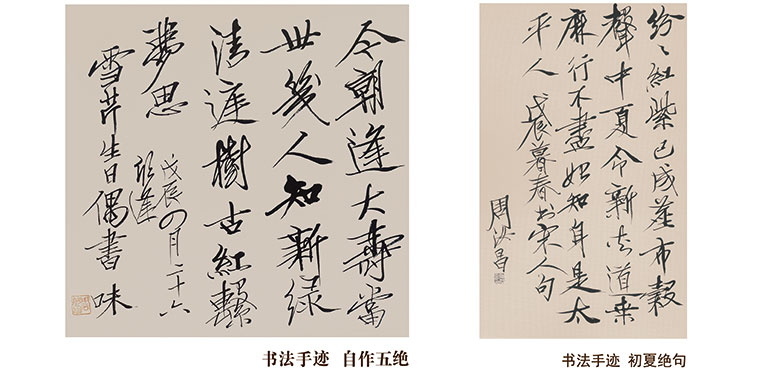 今朝逢大壽當
世幾人知新绿
清遲樹古紅繫
夢思
戊辰四月二十六
欣逢
雪芹生日偶書 味
书法手迹 自作五绝
紛〻紅紫已成塵布穀
聲中夏令新夾道桑
麻行不盡始知身是太
平人 戊辰暮春书宋人句
周汝昌
书法手迹 初夏绝句